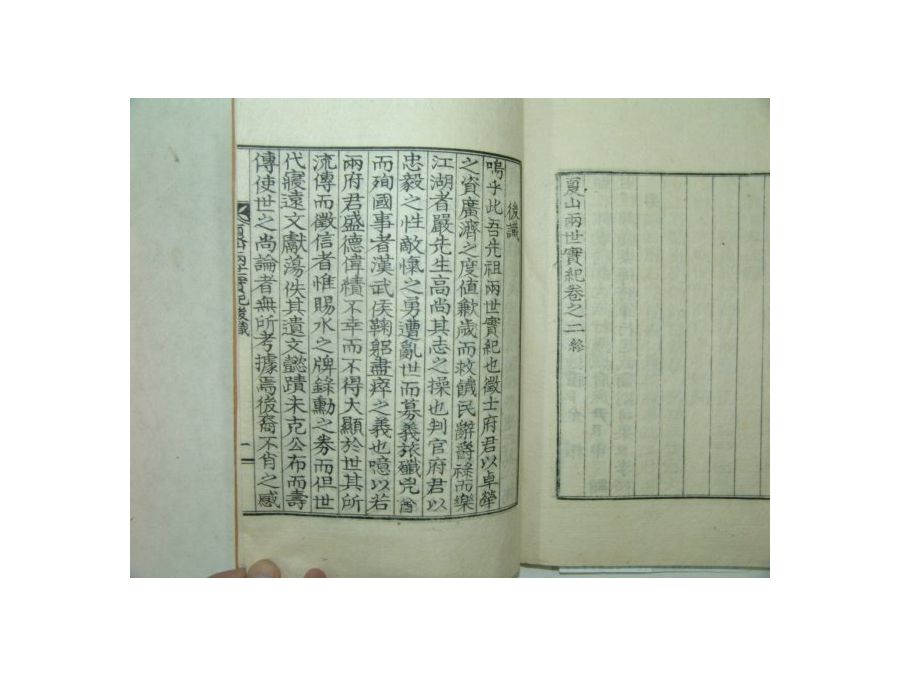 夏山兩世實紀卷之二 終
後識
嗚乎此吾先祖兩世實紀也徵士府君以卓犖
之資廣濟之度値歉歲而救饑民辭爵祿而樂
江湖者嚴先生高尚其志之操也判官府君以
忠毅之性敵愾之勇遭亂世而募義旅殲兇酋
而殉國事者漢武侯鞠躬盡瘁之義也噫以若
兩府君盛德偉績不幸而不得大顯於世其所
流傳而徵信者惟賜水之牌錄勳之券而但世
代寢遠文獻蕩佚其遺文懿蹟未克公布而壽
傳使世之尚論者無所考據焉後裔不肖之感
夏山兩世實紀後識
一